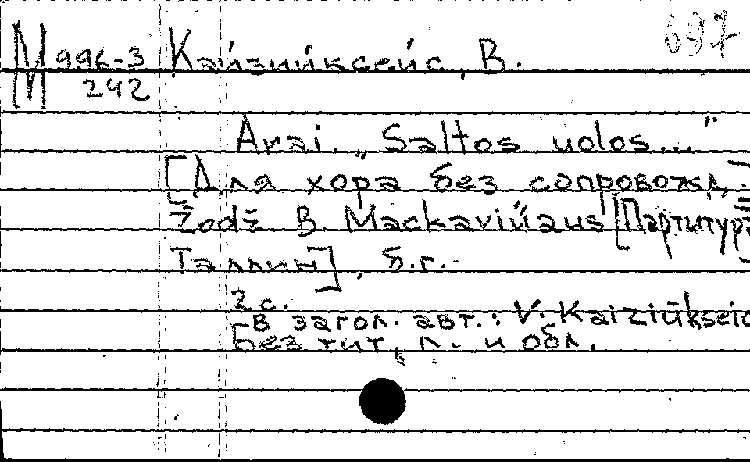 697
М 996-3 Кайзиййксейс, В.
242
Arai. „Saltos uolos..."
[Для хора без сопровожд.
Žodž В. Mackavičiaus [Партитура
Таллин], б.г.-
2 с.
В загол. авт.: V. Kaiziūkseic
Без тит. л. и обл.